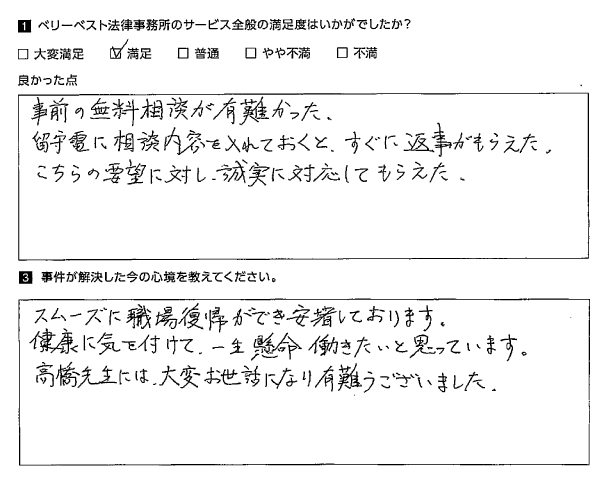 1 ベリーベスト法律事務所のサービス全般の満足度はいかがでしたか?
□ 大変満足 ☑ 満足 □ 普通 □ やや不満 □ 不満
良かった点
事前の無料相談が有難かった、
留守電に相談内容を入れておくと、すぐに返事がもらえた。
こちらの要望に対し、誠実に対応してもらえた、
3 事件が解決した今の心境を教えてください。
スムーズに職場復帰ができ安堵しております。
健康に気を付けて、一生懸命働きたいと思っています。
高橋先生には、大変お世話になり有難うございました、